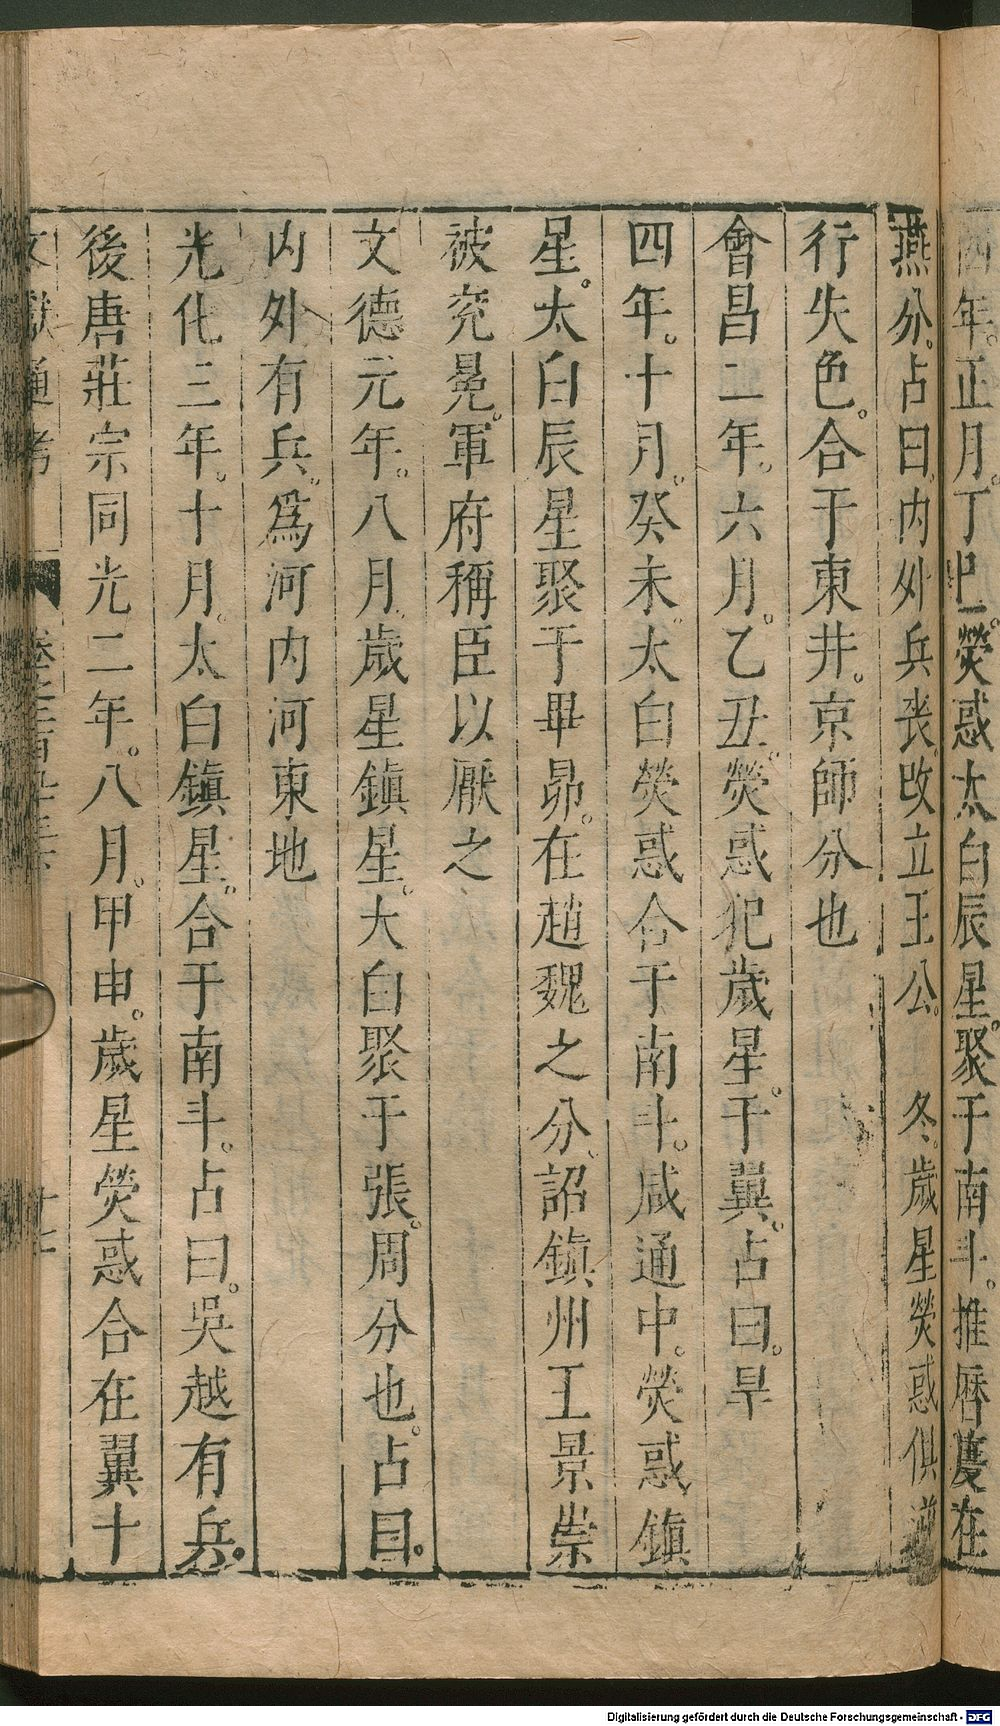 四年。正月。丁巳。熒惑太白辰星。聚于南斗。推曆度在
燕分。占曰。内外兵喪。改立王公。 冬。歲星熒惑俱逆
行失色。合于東井。京師分也
會昌二年。六月。乙丑。熒惑犯歲星。于翼。占曰。旱
四年。十月。癸未。太白熒惑合于南斗。咸通中。熒惑鎮
星。太白辰星聚于畢昴。在趙魏之分。詔鎮州王景崇
被兖冕。軍府稱臣以厭之
文德元年。八月。歲星鎮星。太白聚于張。周分也。占曰。
内外有兵。爲河内河東地
光化三年。十月。太白鎮星。合于南斗。占曰。吳越有兵。
後唐莊宗同光二年。八月。甲申。歲星熒惑合在翼十
文獻通考 卷之二百九十三下 十七
Digitalisierung gefördert durch die Deutsche Forschungsgemeinschaft - DFG